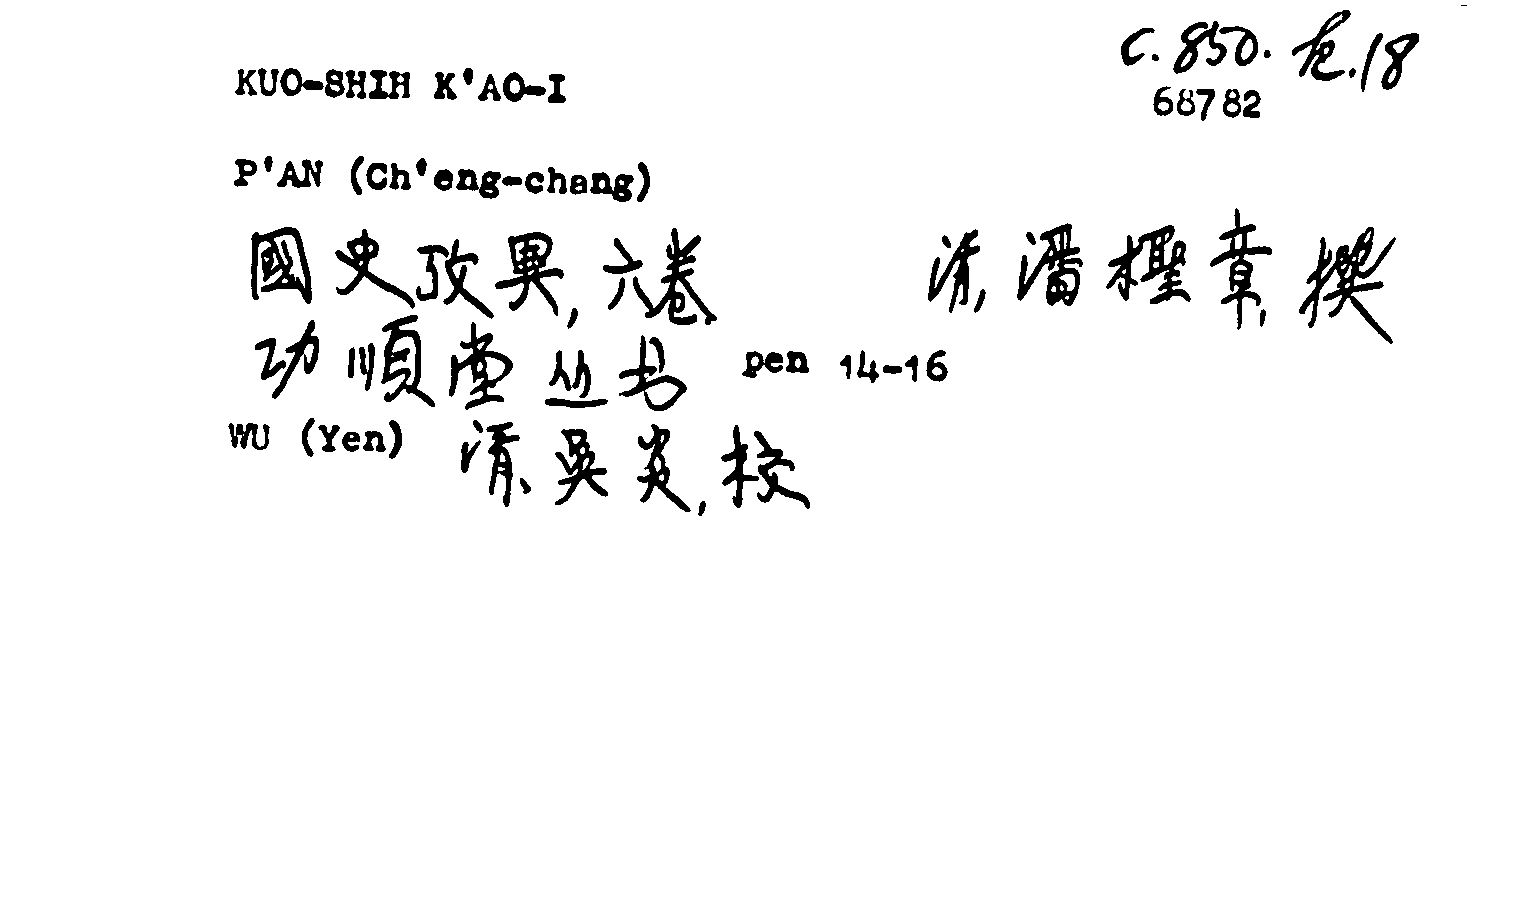 C. 850. 危.18
68782
KUO-SHIH K'AO-I
P'AN (Ch'eng-chang)
國史攷異, 六卷 清, 潘檉章, 撰
功順堂丛书 pen 14-16
WU (Yen) 清, 吳炎, 校